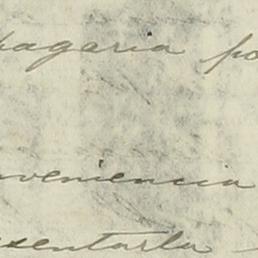 pagaria po
nveniencia
sentarla